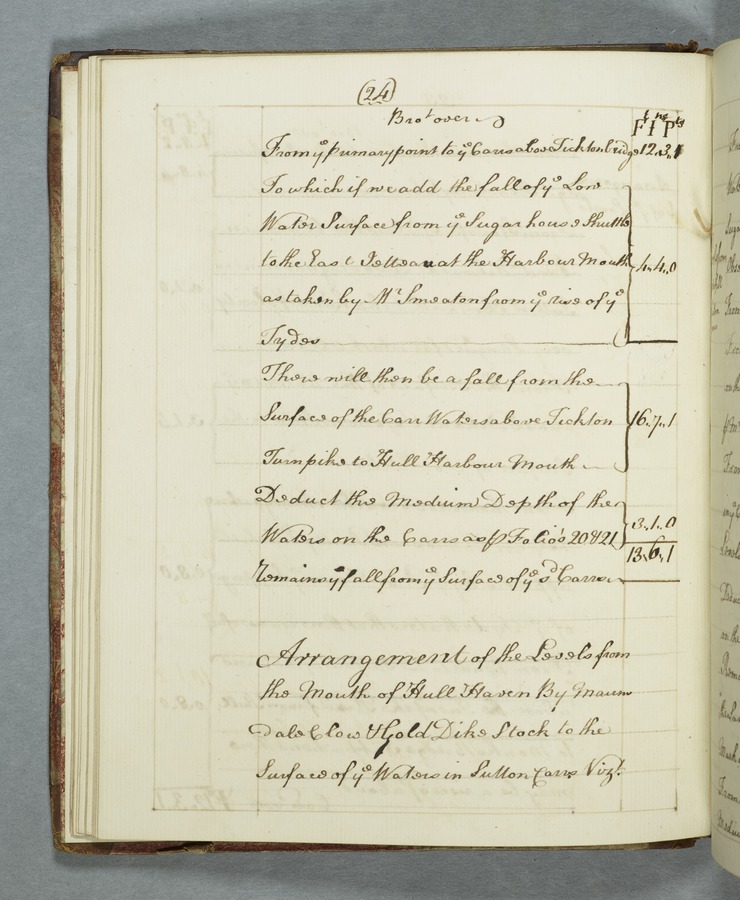 (24)
Brot over
Ft Ins Pts
From ye primary point to ye Carrs above Tickton bridge 12.3.1
To which if we add the fall of ye Low
Water Surface from ye Sugar house Shuttle
to the East Jettea at the Harbour Mouth 4.4.0
as taken by Mr Smeaton from ye rise of ye
Tydes
There will then be a fall from the
Surface of the Carr Waters above Tickton 16.7.1
Turnpike to Hull Harbour Mouth
Deduct the Medium Depth of the
Waters on the Carrs as p Folio's 20 & 21 3.1.0
13.6.1
Remains ye fall from ye Surface of ye sd Carrs
Arrangement of the Levels from
the Mouth of Hull Haven By Maum
dale Clow & Gold Dike Stock to the
Surface of ye Waters in Sutton Carrs Vizt.